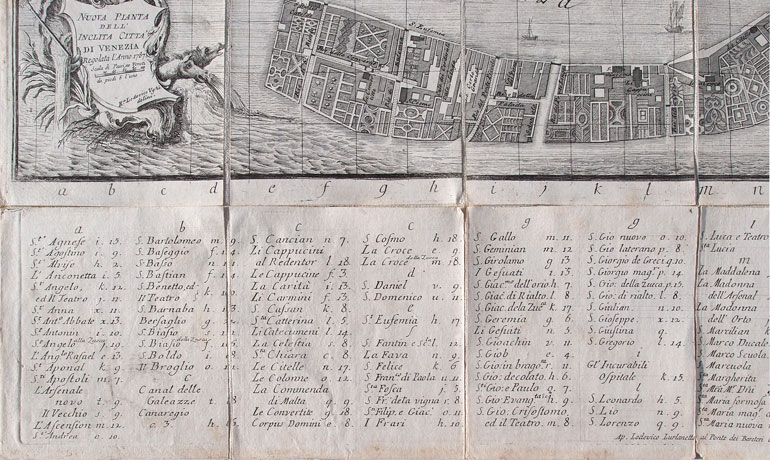 NUOVA PIANTA
DELL'
INCLITA CITTÀ
DI VENEZIA
Regolata l'Anno 1787
di piedi 6 l'uno
S. Eufemia
a b c d e f g h i j k l m n
a
S.ᵗᵃ Agnese i. 13.
S.ᵗ Agostino i. 9.
S.ᵗ Alvise h. 2.
L'Anconetta i. 5.
S.ᵗ Angelo, k. 12.
ed il Teatro j. 11.
S.ᵗ Anna x. 11.
S.ᵗ Ant.º Abbate x. 13.
S.ᵗ Antonin i. 10.
S.ᵗ Angelo della Zueca g. 19.
L'Ang.º Rafael e. 13.
S.ᵗ Aponal k. 9.
S.ᵗⁱ Apostoli m. 7.
L'Arsenale
novo t. 9.
Il Vechio s. 9.
L'Ascension m. 12.
S.ᵗ Andrea o. 10.
b
S. Bartolomeo m. 9.
S. Baseggio f. 14.
S. Baso n. 11.
S. Bastian f. 14.
S. Benetto, ed
Il Teatro k. 10.
S. Barnaba h. 13.
Bersaglio q. 22.
S. Biasio t. 12.
S. Biasio della Zueca
S. Boldo i. 8.
Il Broglio o. 11.
C
Canal delle
Galeazze t. 8
Canaregio
c. 3. h. 5
c
S. Cancian n 7.
Li Cappucini
al Redentor l. 18.
Le Cappucine f. 3.
La Carità i. 13.
Li Carmini f. 13.
S. Cassan k. 8.
S.ᵗᵃ Catterina l. 5.
Li Catecumeni l. 14.
La Celestia s. 8.
S.ᵗᵃ Chiara c. 8.
Le Citelle n. 17.
Le Colonne o. 12.
La Commenda
di Malta q. 9.
Le Convertite g. 18.
Corpus Domini e 8.
C
S. Cosmo h. 18.
La Croce e 9.
La Croce della Zueca m. 18.
d
S. Daniel v. 9.
S. Domenico u. 11.
e
S.ᵗ Eufemia h. 17.
f
S. Fantin e S.ᶜ l. 12.
La Fava n. 9.
S. Felice k. 6
S. Fran.ᶜᵒ di Paola u. 11.
S.ᵗᵃ Fosca j. 5.
S. Fr. della vigna r. 8.
S.ᵗ Filip. e Giac.º o. 11.
I Frari h. 10.
g
S. Gallo m. 11.
S. Geminian m. 12
S. Girolamo g. 13
I Gesuati i. 13.
S. Giac.ᵐº dell'orio h. 7
S. Giac. di Rialto. l. 8.
S. Giac. dela Zuec.ᵃ k. 17.
S. Geremia g. 6
Li Gesuiti n. 5.
S. Gioachin v. 11.
S. Giob e. 4.
S. Gio: in brag.º r. 11.
S. Gio: decolato. h. 6.
S.ᵗ Gio: e Paulo q. 7.
S. Gio Evang.ᵗᵃ h. 9.
S. Gio: Crisostomo,
ed il Teatro. m. 8.
g
S. Gio nuovo o. 10.
S. Gio laterano p. 8.
S. Giorgio de Greci. q. 10.
S. Giorgio mag.ᵉ p. 14.
S. Gio: della Zueca. p. 13.
S. Gio: di rialto. l. 8.
S. Giulian n. 10.
S. Gioseppe. x. 12.
S. Giustina q. 9.
S. Gregorio l. 14.
i
Gl' Incurabili
Ospitale k. 15.
l
S. Leonardo h. 5.
S. Lio n. 9.
S. Lorenzo q. 9.
l
S. Luca e Teatro
S.ᵗᵃ Lucia
m
La Maddalena
La Madonna
dell'Arsenal
La Madonna
dell' Orto
S. Marzilian
S. Marco Ducale
S. Marco Scuola
S. Marcuola
S.ᵗᵃ Margherita
S.ᵗᵃ Maria formosa
S.ᵗᵃ Maria mag.
S.ᵗᵃ Maria nuova
Ap. Lodovico Furlanetto al Ponte dei Baretteri